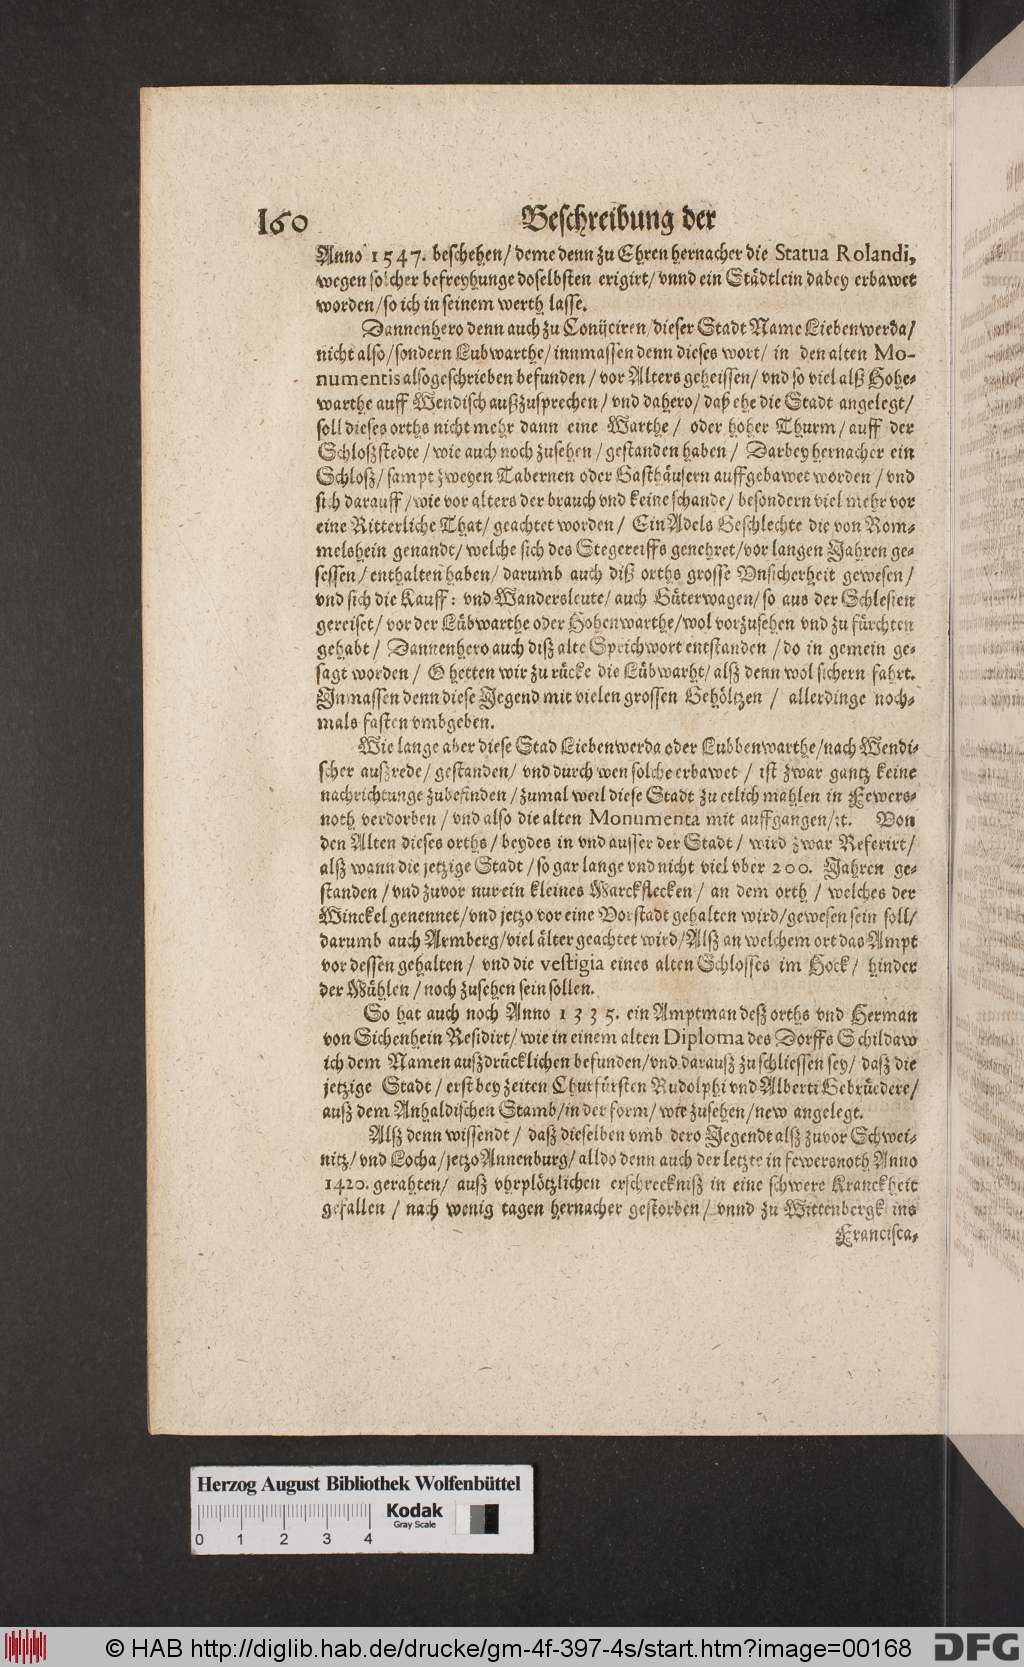 160 Beschreibung der
Anno 1547. beschehen/ deme denn zu Ehren hernacher die Statua Rolandi,
wegen solcher befreyhunge doselbsten erigirt/ vnnd ein Städtlein dabey erbawet
worden/ so ich in seinem werth lasse.
Dannenhero denn auch zu Conijciren/ dieser Stadt Name Liebenwerda/
nicht also/ sondern Lubwarthe/ innmassen denn dieses wort/ in den alten Mo-
numentis also geschrieben befunden/ vor Alters geheissen/ vnd so viel alß Hohe-
warthe auff Wendisch außzusprechen/ vnd dahero/ daß ehe die Stadt angelegt/
soll dieses orths nicht mehr dann eine Warthe/ oder hoher Thurm/ auff der
Schloßstedte/ wie auch noch zusehen/ gestanden haben/ Darbey hernacher ein
Schloß/ sampt zweyen Tabernen oder Gasthäusern auffgebawet worden/ vnd
sich darauff/ wie vor alters der brauch vnd keine schande/ besondern viel mehr vor
eine Ritterliche That/ geachtet worden/ Ein Adels Geschlechte die von Rom-
melshein genandt/ welche sich des Stegereiffs genehret/ vor langen Jahren ge-
sessen/ enthalten haben/ darumb auch diß orths grosse Vnsicherheit gewesen/
vnd sich die Kauff: vnd Wandersleute/ auch Güterwagen/ so aus der Schlesien
gereiset/ vor der Lübwarthe oder Hohenwarthe/ wol vorzusehen vnd zu fürchten
gehabt/ Dannenhero auch diß alte Sprichwort entstanden/ do in gemein ge-
sagt worden/ O hetten wir zu rücke die Lübwarht/ alß denn wol sichern fahrt.
Inmassen denn diese Jegend mit vielen grossen Gehöltzen/ allerdinge noch-
mals fasten vmbgeben.
Wie lange aber diese Stad Liebenwerda oder Lubbenwarthe/ nach Wendi-
scher außrede/ gestanden/ vnd durch wen solche erbawet/ ist zwar gantz keine
nachrichtunge zubefinden/ zumal weil diese Stadt zu etlich mahlen in Fewers-
noth verdorben/ vnd also die alten Monumenta mit auffgangen/ ꝛc. Von
den Alten dieses orths/ beydes in vnd ausser der Stadt/ wird zwar Referirt/
alß wann die jetzige Stadt/ so gar lange vnd nicht viel vber 200. Jahren ge-
standen/ vnd zuvor nur ein kleines Marckflecken/ an dem orth/ welches der
Winckel genennet/ vnd jetzo vor eine Vorstadt gehalten wird/ gewesen sein soll/
darumb auch Armberg/ viel älter geachtet wird/ Alß an welchem ort das Ampt
vor dessen gehalten/ vnd die vestigia eines alten Schlosses im Hock/ hinder
der Mühlen/ noch zusehen sein sollen.
So hat auch noch Anno 1335. ein Amptman deß orths vnd Herman
von Sichenhein Residirt/ wie in einem alten Diploma des Dorffs Schildaw
ich dem Namen außdrücklichen befunden/ vnd darauß zu schliessen sey/ daß die
jetzige Stadt/ erst bey zeiten Churfürsten Rudolphi vnd Alberti Gebrüedere/
auß dem Anhaldischen Stamb/ in der form/ wie zusehen/ new angelegt.
Alß denn wissendt/ daß dieselben vmb dero Jegendt alß zuvor Schwei-
nitz/ vnd Locha/ jetzo Annenburg/ alldo denn auch der letzte in fewersnoth Anno
1420. gerahten/ auß vhrplötzlichen erschreckniß in eine schwere Kranckheit
gefallen/ nach wenig tagen hernacher gestorben/ vnnd zu Wittenbergk ins
Francisca-
Herzog August Bibliothek Wolfenbüttel
Kodak
Gray Scale
0 1 2 3 4
© HAB http://diglib.hab.de/drucke/gm-4f-397-4s/start.htm?image=00168
DFG